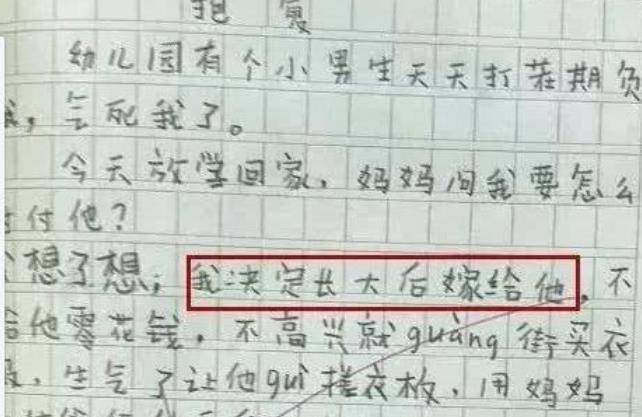 报 复
幼儿园有个小男生天天打茬期负
我，气死我了。
今天放学回家，妈妈问我要怎么
对付他？
想了想，我决定长大后嫁给他，不
给他零花钱，不高兴就guàng街买衣
服，生气了让他guì搓衣板，用妈妈